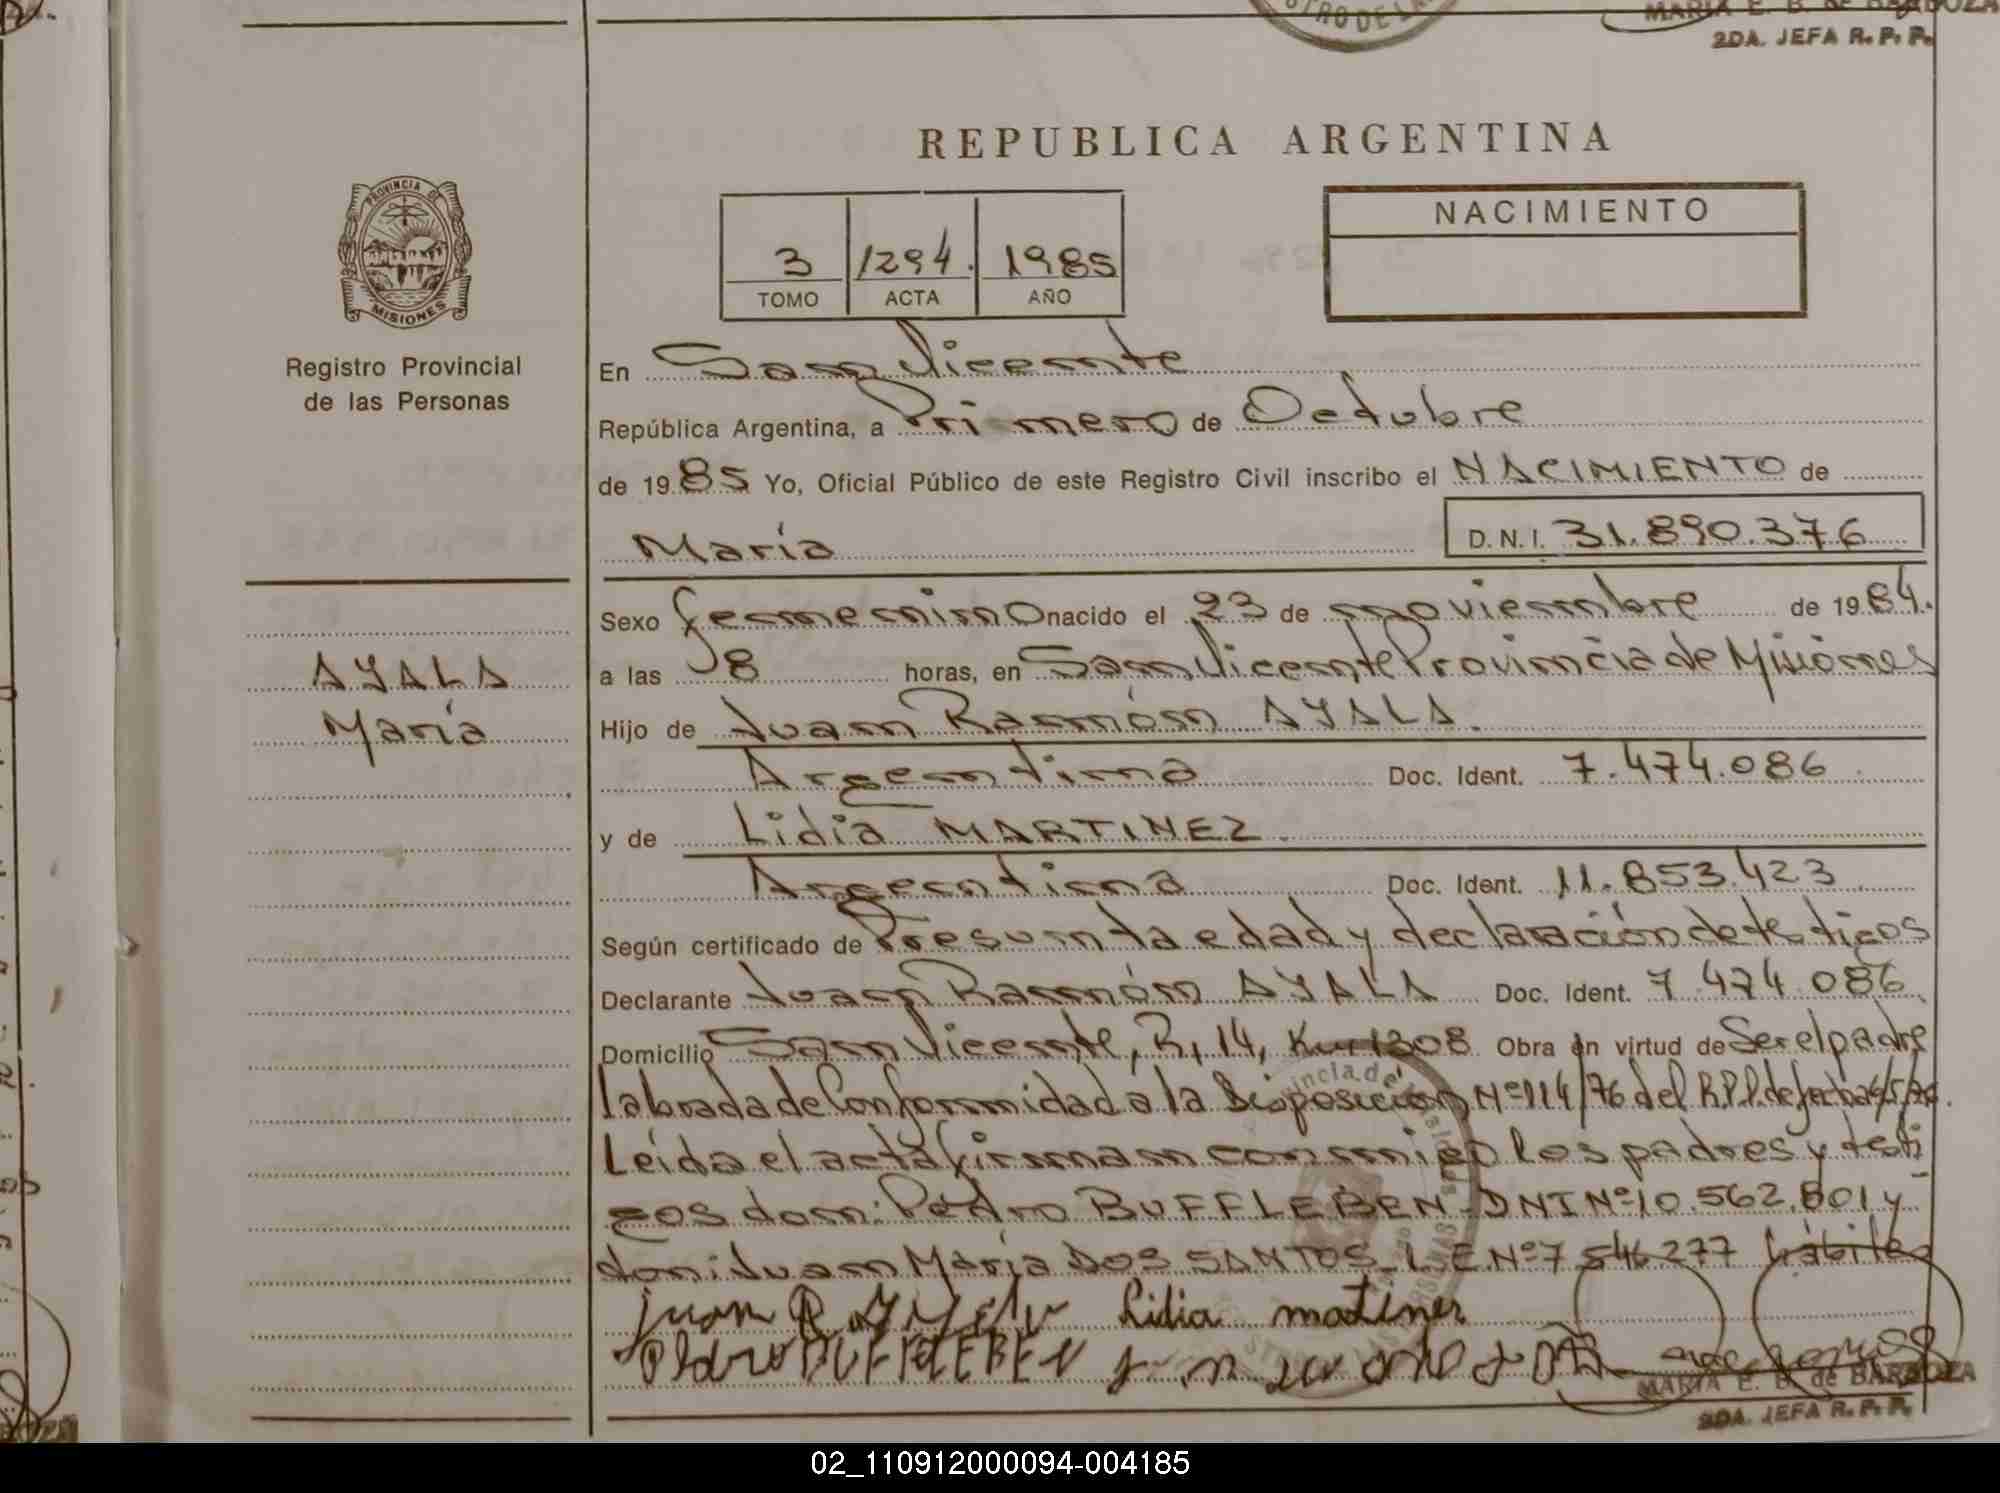 MARIA E. B. de BARBOZA
2DA. JEFA R. P. P.
REPUBLICA ARGENTINA
PROVINCIA DE
MISIONES
Registro Provincial
de las Personas
3 1294. 1985
TOMO ACTA AÑO
NACIMIENTO
En San Vicente
República Argentina, a Primero de Octubre
de 1985 Yo, Oficial Público de este Registro Civil inscribo el NACIMIENTO de
María D.N.I. 31.890.376
Sexo femenino nacido el 23 de noviembre de 1984.
a las 8 horas, en San Vicente Provincia de Misiones
AYALA
María
Hijo de Juan Ramón AYALA.
Argentina Doc. Ident. 7.474.086
y de Lidia MARTINEZ
Argentina Doc. Ident. 11.853.423
Según certificado de Presunta edad y declaración de testigos
Declarante Juan Ramón AYALA Doc. Ident. 7.474.086
Domicilio San Vicente, R, 14, Km 1308 Obra en virtud de Ser el padre
labrada de Conformidad a la Disposición Nº 114/76 del R.P.P. de fecha
Leída el acta firman conmigo los padres y testi
gos don: Pedro BUFFLEBEN - DNI Nº 10.562.801 y
don: Juan María DOS SANTOS - L.E. Nº 7.546.277 hábiles
Juan R Ayala Lidia matiner
Pedro BUFFLEBEN
MARIA E. B. de BARBOZA
2DA. JEFA R. P. P.
02_110912000094-004185